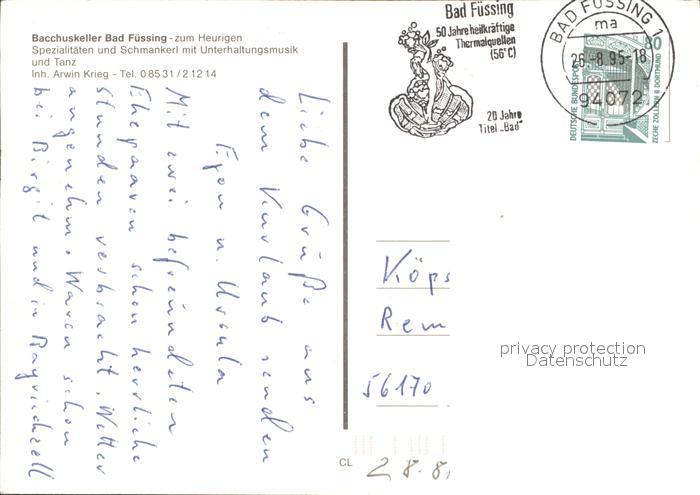 Bacchuskeller Bad Füssing - zum Heurigen
Spezialitäten und Schmankerl mit Unterhaltungsmusik
und Tanz
Inh. Arwin Krieg - Tel. 08531/21214
Liebe Grüße aus
dem Kurlaub senden
Egon u. Ursula
Mit zwei befreundeten
Ehepaaren schon herrliche
Stunden verbracht. Wetter
angenehm. Waren schon
bei Birgit und in Bayrischzell
Bad Füssing
50 Jahre heilkräftige
Thermalquellen
(56°C)
20 Jahre
Titel „Bad"
BAD FÜSSING 1
ma
26.-8.95-18
94072
80
DEUTSCHE BUNDESPOST
ZECHE ZOLLERN II DORTMUND
Köps
Rem
56170
privacy protection
Datenschutz
CL
28.8.